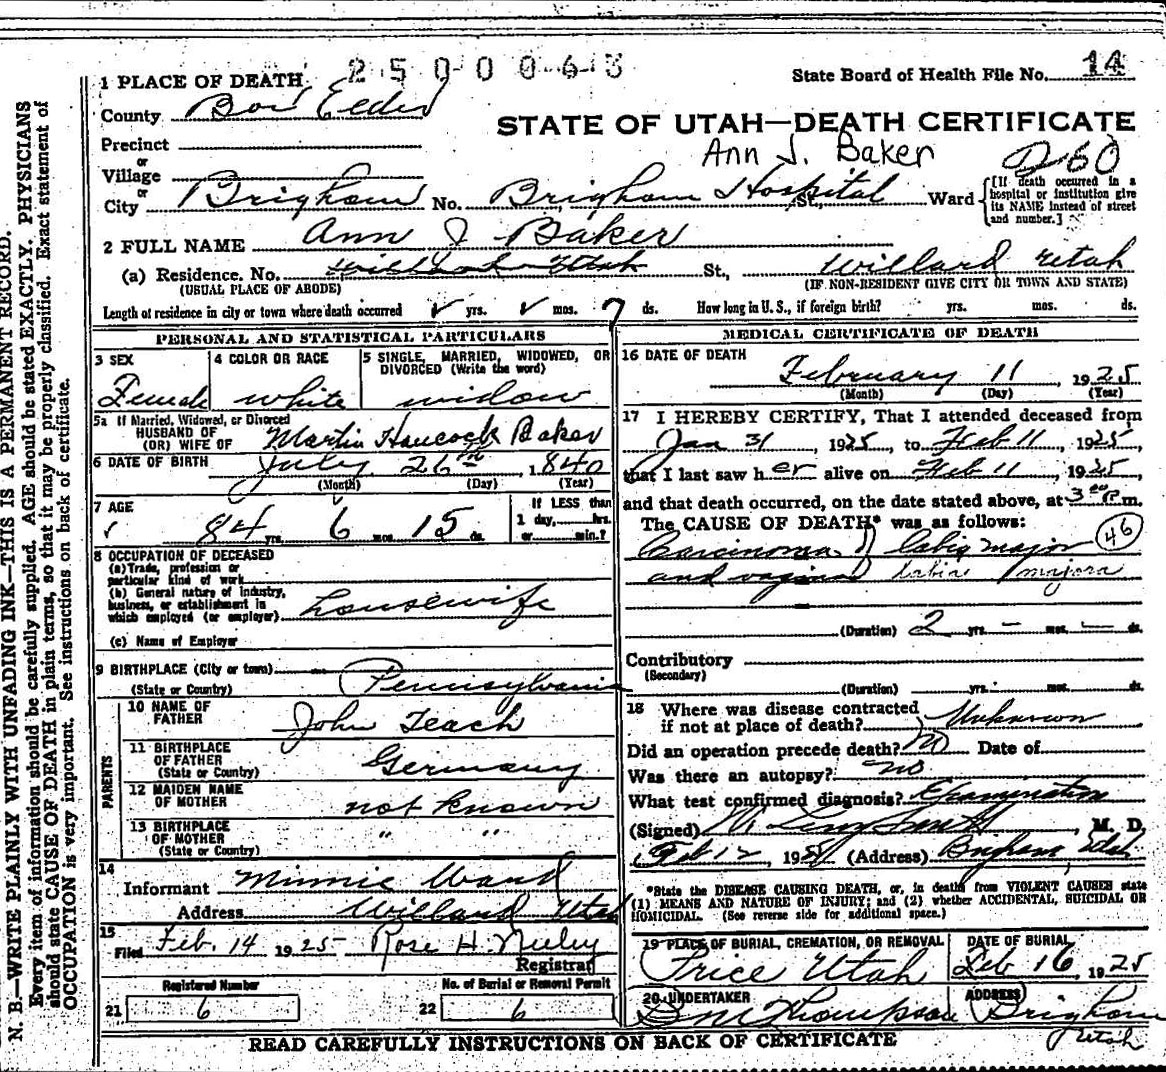 2500063
1 PLACE OF DEATH
State Board of Health File No. 14
County Box Elder
STATE OF UTAH—DEATH CERTIFICATE
Precinct
Ann J. Baker
or
Village
or
City Brigham No. Brigham Hospital St., Ward
[If death occurred in a hospital or institution give its NAME instead of street and number.]
2 FULL NAME Ann J Baker
(a) Residence. No. St., Willard Utah
(USUAL PLACE OF ABODE) (IF NON-RESIDENT GIVE CITY OR TOWN AND STATE)
Length of residence in city or town where death occurred ✓ yrs. ✓ mos. 7 ds. How long in U. S., if foreign birth? yrs. mos. ds.
PERSONAL AND STATISTICAL PARTICULARS
3 SEX
Female
4 COLOR OR RACE
white
5 SINGLE, MARRIED, WIDOWED, OR DIVORCED (Write the word)
widow
5a If Married, Widowed, or Divorced
HUSBAND OF
(OR) WIFE OF Martin Hancock Baker
6 DATE OF BIRTH July 26th, 1840
(Month) (Day) (Year)
7 AGE
✓ 84 yrs. 6 mos. 15 ds.
If LESS than
1 day, hrs.
or min.?
8 OCCUPATION OF DECEASED
(a) Trade, profession or
particular kind of work
(b) General nature of industry,
business, or establishment in
which employed (or employer) housewife
(c) Name of Employer
9 BIRTHPLACE (City or town)
(State or Country) Pennsylvania
PARENTS
10 NAME OF
FATHER John Teach
11 BIRTHPLACE
OF FATHER
(State or Country) Germany
12 MAIDEN NAME
OF MOTHER not known
13 BIRTHPLACE
OF MOTHER
(State or Country) " "
14
Informant Minnie Ward
Address Willard Utah
15
Filed Feb. 14 1925 Rose H. Neeley
Registrar
Registered Number
21 6
No. of Burial or Removal Permit
22 6
MEDICAL CERTIFICATE OF DEATH
16 DATE OF DEATH
February 11, 1925
(Month) (Day) (Year)
17 I HEREBY CERTIFY, That I attended deceased from
Jan 31, 1925, to Feb 11, 1925,
that I last saw her alive on Feb 11, 1925,
and that death occurred, on the date stated above, at 3 P.m.
The CAUSE OF DEATH* was as follows:
Carcinoma of labia major 46
and vagina labiae majora
(Duration) 2 yrs. – mos. – ds.
Contributory
(Secondary)
(Duration) yrs. mos. ds.
18 Where was disease contracted
if not at place of death? Unknown
Did an operation precede death? No Date of
Was there an autopsy? no
What test confirmed diagnosis? Examination
(Signed) M. D.
Feb 12, 19 (Address) Brigham, Utah
*State the DISEASE CAUSING DEATH, or, in deaths from VIOLENT CAUSES state
(1) MEANS AND NATURE OF INJURY; and (2) whether ACCIDENTAL, SUICIDAL OR
HOMICIDAL. (See reverse side for additional space.)
19 PLACE OF BURIAL, CREMATION, OR REMOVAL
Price Utah
DATE OF BURIAL
Feb 16, 1925
20 UNDERTAKER
Thompson
ADDRESS
Brigham
Utah
READ CAREFULLY INSTRUCTIONS ON BACK OF CERTIFICATE
N. B.—WRITE PLAINLY WITH UNFADING INK—THIS IS A PERMANENT RECORD.
Every item of information should be carefully supplied. AGE should be stated EXACTLY. PHYSICIANS
should state CAUSE OF DEATH in plain terms, so that it may be properly classified. Exact statement of
OCCUPATION is very important. See instructions on back of certificate.